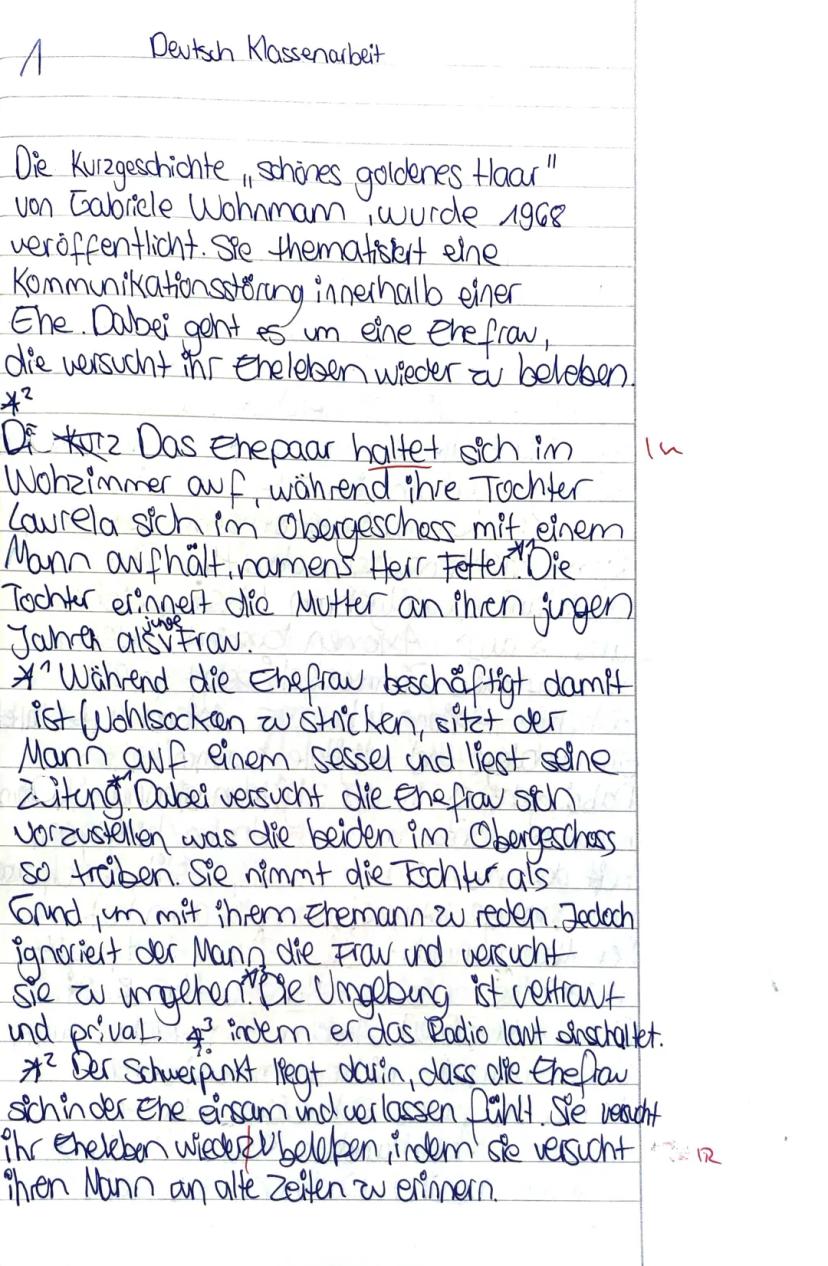 1 Deutsch Klassenarbeit
Die Kurzgeschichte „schönes goldenes Haar"
von Gabriele Wohnmann, wurde 1968
veröffentlicht. Sie thematisiert eine
Kommunikationsstörung innerhalb einer
Ehe. Dabei geht es um eine Ehefrau,
die versucht ihr Eheleben wieder zu beleben.
*²
Das Ehepaar haltet sich im
Wohzimmer auf, während ihre Tochter
Laurela sich im Obergeschoss mit einem
Mann aufhält, namens Herr Fetter.*¹ Die
Tochter erinnert die Mutter an ihren jungen
Jahren als junge Frau.
*¹ Während die Ehefrau beschäftigt damit
ist Wohlsocken zu stricken, sitzt der
Mann auf einem Sessel und liest seine
Zeitung.*¹ Dabei versucht die Ehefrau sich
vorzustellen was die beiden im Obergeschoss
so treiben. Sie nimmt die Tochter als
Grund, um mit ihrem Ehemann zu reden. Jedoch
ignoriert der Mann die Frau und versucht
sie zu umgehen.*³ Die Umgebung ist vertraut
und privat. *³ indem er das Radio laut einschaltet.
*² Der Schwerpunkt liegt darin, dass die Ehefrau
sich in der Ehe einsam und verlassen fühlt. Sie versucht
ihr Eheleben wieder zu beleben, indem sie versucht
ihren Mann an alte Zeiten zu erinnern.